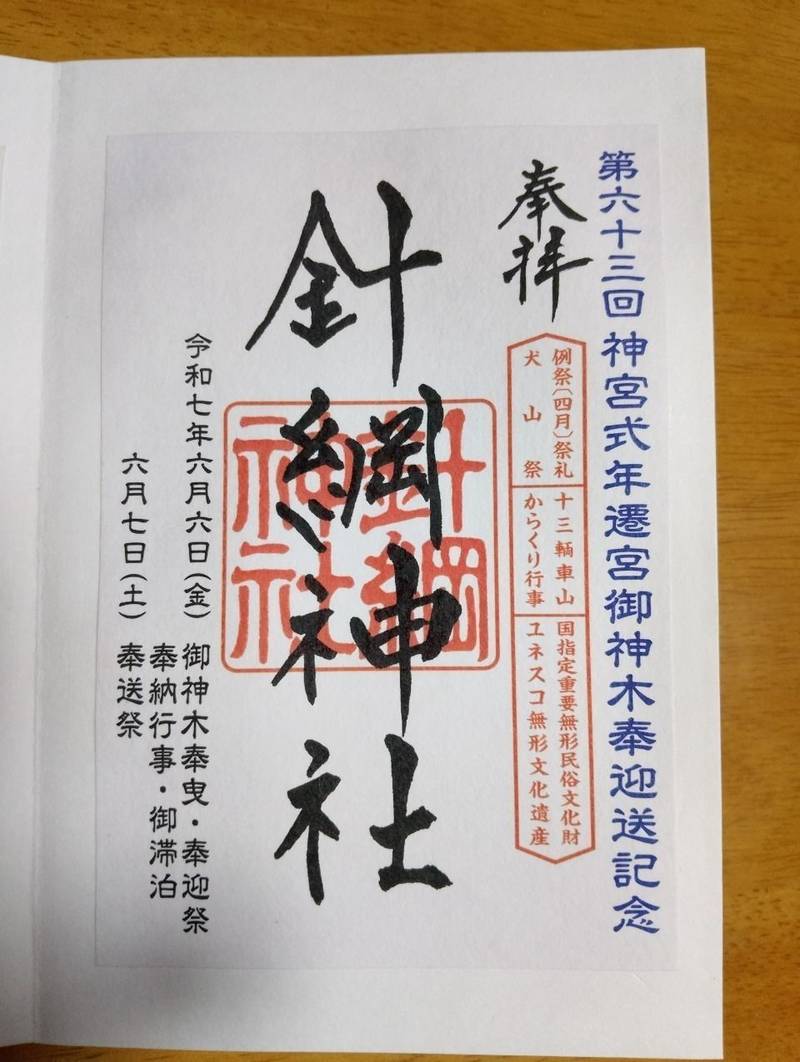 第六十三回 神宮式年遷宮御神木奉迎送記念
奉拝
例祭(四月)祭礼
犬山祭
十三輌車山
からくり行事
国指定重要無形民俗文化財
ユネスコ無形文化遺産
針綱神社
針綱
神社
令和七年六月六日(金) 御神木奉曳・奉迎祭
奉納行事・御滞泊
六月七日(土) 奉送祭